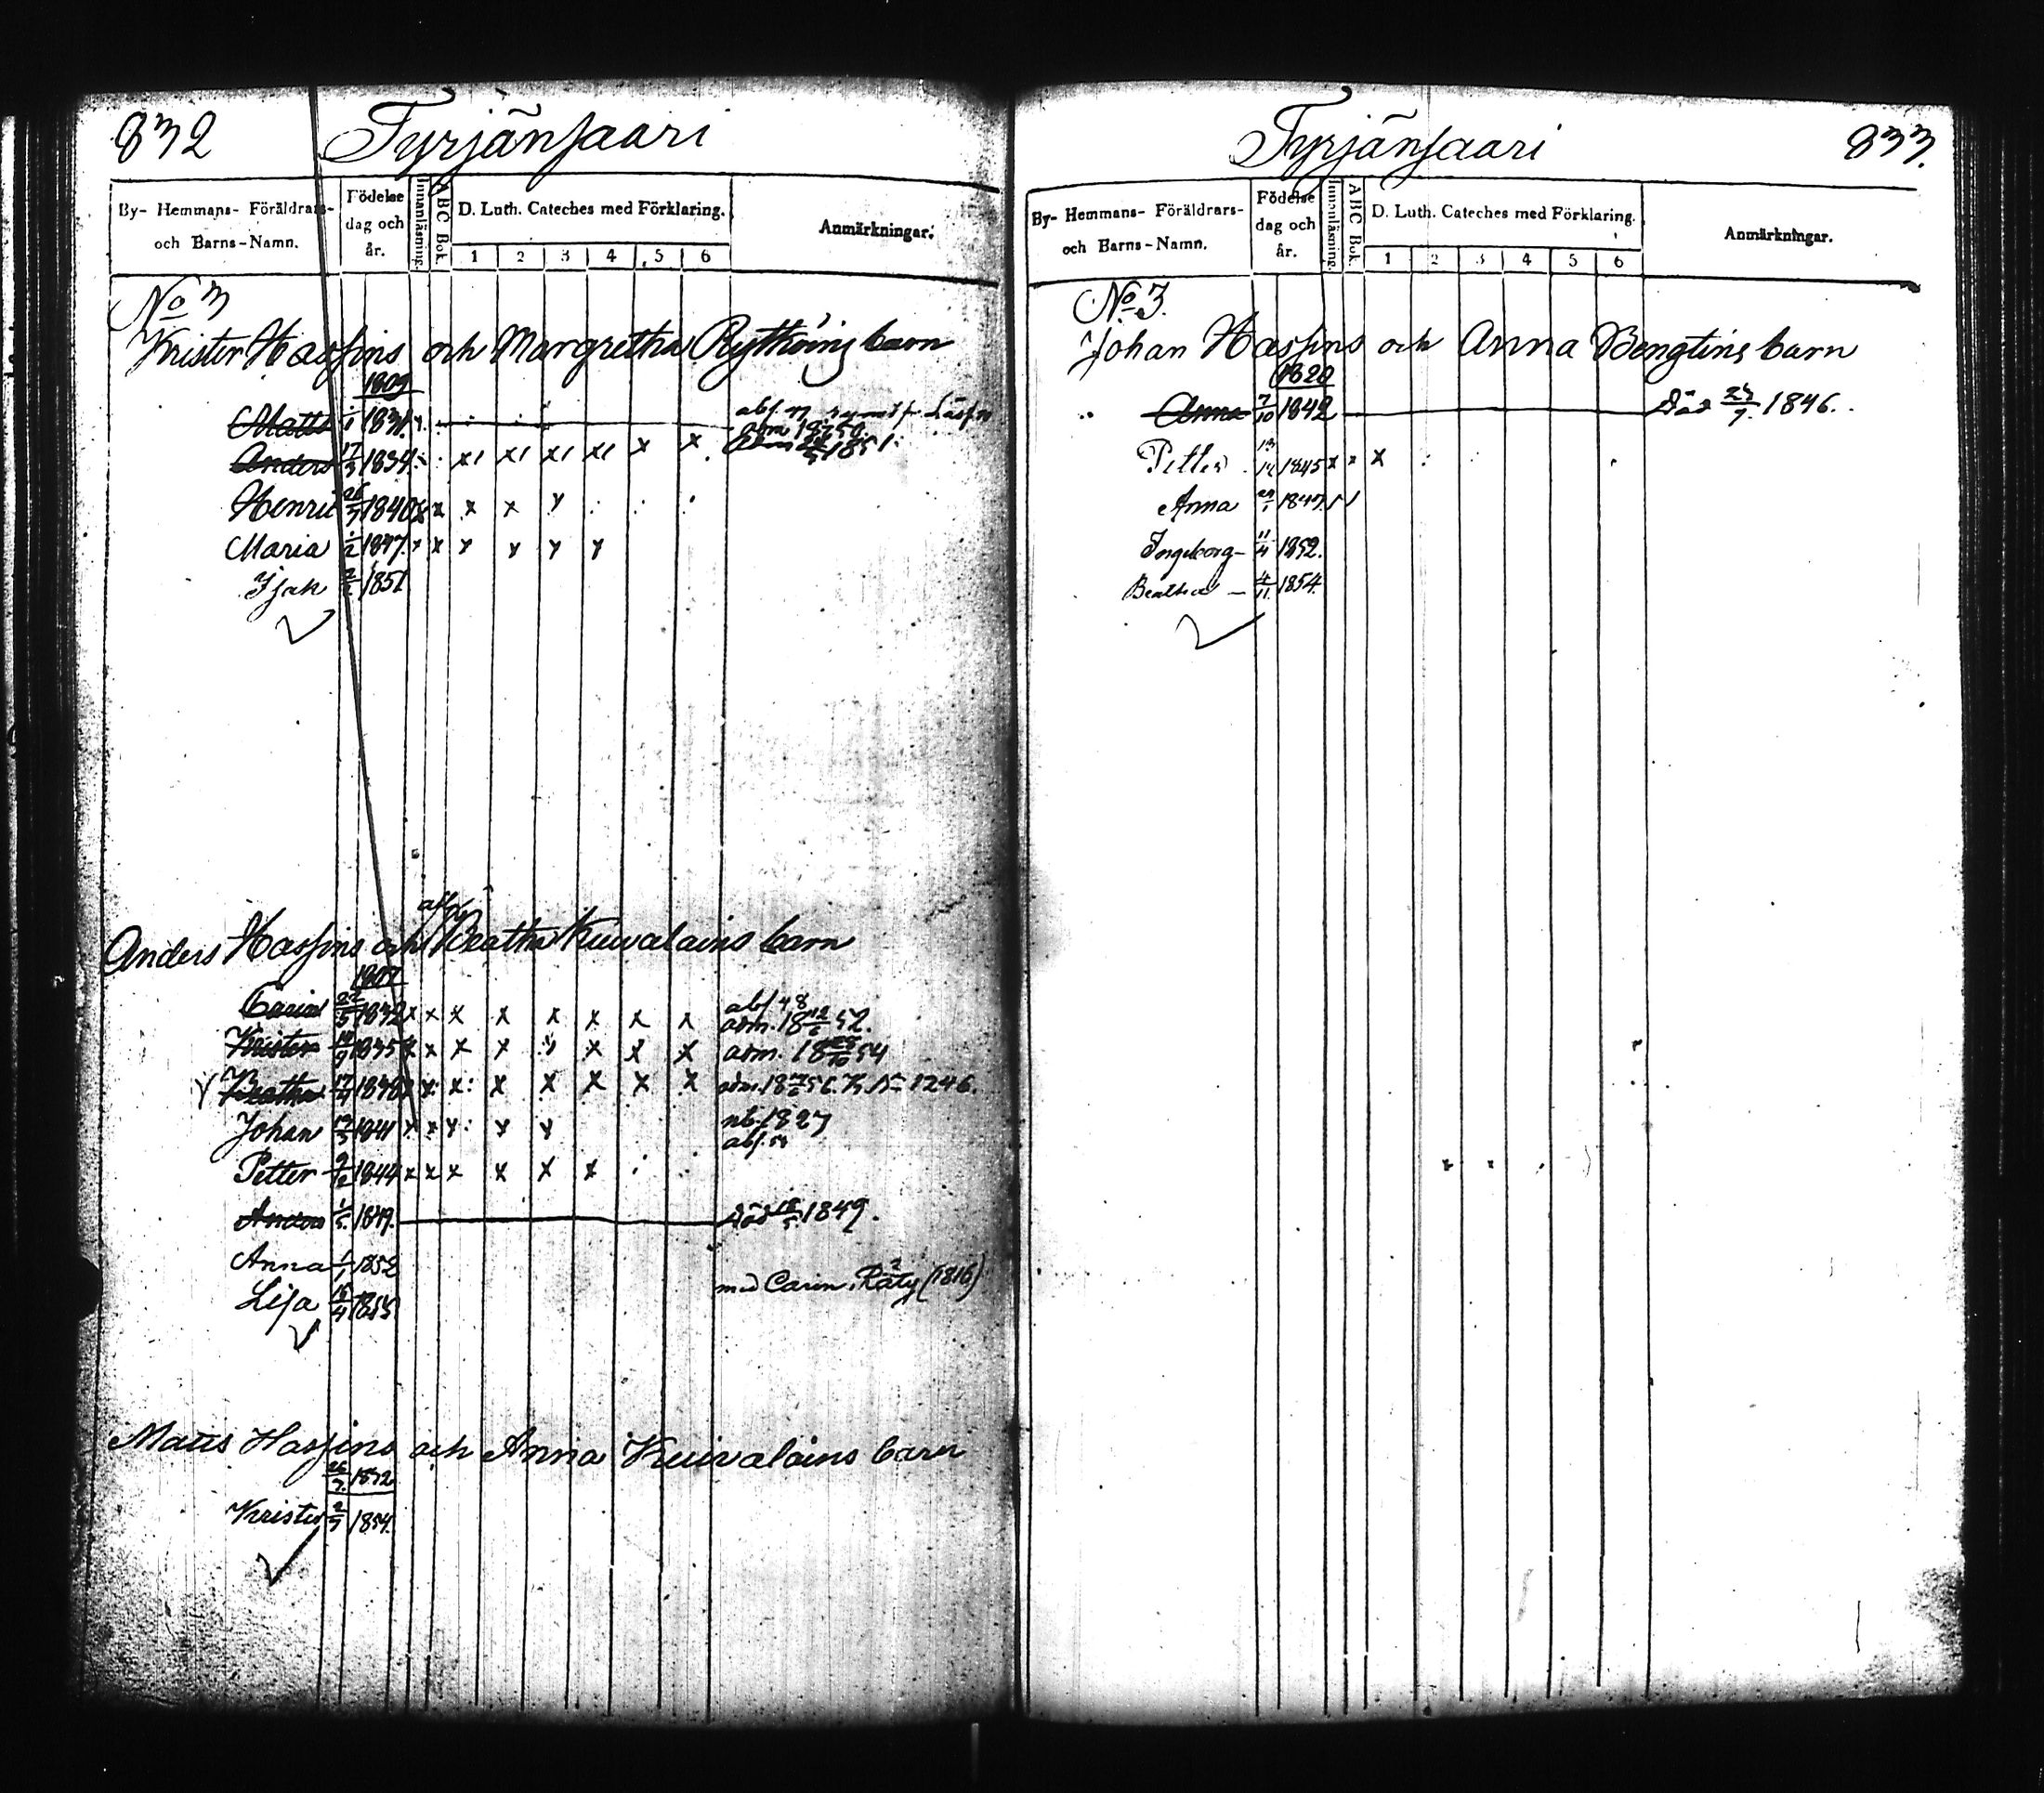 832 Tyrjänsaari
By- Hemmans- Föräldrars- och Barns-Namn.
Födelse dag och år.
Innanläsning.
ABC Bok.
D. Luth. Cateches med Förklaring.
1 2 3 4 5 6
Anmärkningar.
No 3
Krister Hassins och Margretha Rythöins barn
1809
Matts 1831
Anders 17/3 1834 x x x x x x 1851
Henric 26/7 1840 x x x x
Maria 1/2 1847 x x x x x x
Isak 2/2 1851
Anders Hassins och Beatha Kuivalains barn
1807
Carin 22/5 1832 x x x x x x x x abs 48
adm. 18 12/6 52.
Krister 1835 x x x x x x x adm. 18 54
Beatha 17/4 1838 x x x x x x x adm. 18 56. No 1246.
Johan 1841 x x x x x nb. 1827
abs. 54
Petter 9/12 1844 x x x x x x
Anders 1/5 1849. Död 1849.
Anna 1/1 1852
Lisa 15/4 1855 med Carin Räty (1816)
Matts Hassins och Anna Kuivalains barn
26/7 1832
Krister 1854.
Tyrjänsaari 833.
By- Hemmans- Föräldrars- och Barns-Namn.
Födelse dag och år.
Innanläsning.
ABC Bok.
D. Luth. Cateches med Förklaring.
1 2 3 4 5 6
Anmärkningar.
No 3.
Johan Hassins och Anna Bengtins barn
1820
Anna 7/10 1842 Död 1846.
Petter 1845 x x x
Anna 1847
Ingeborg 11/4 1852.
Beatha 4/11 1854.